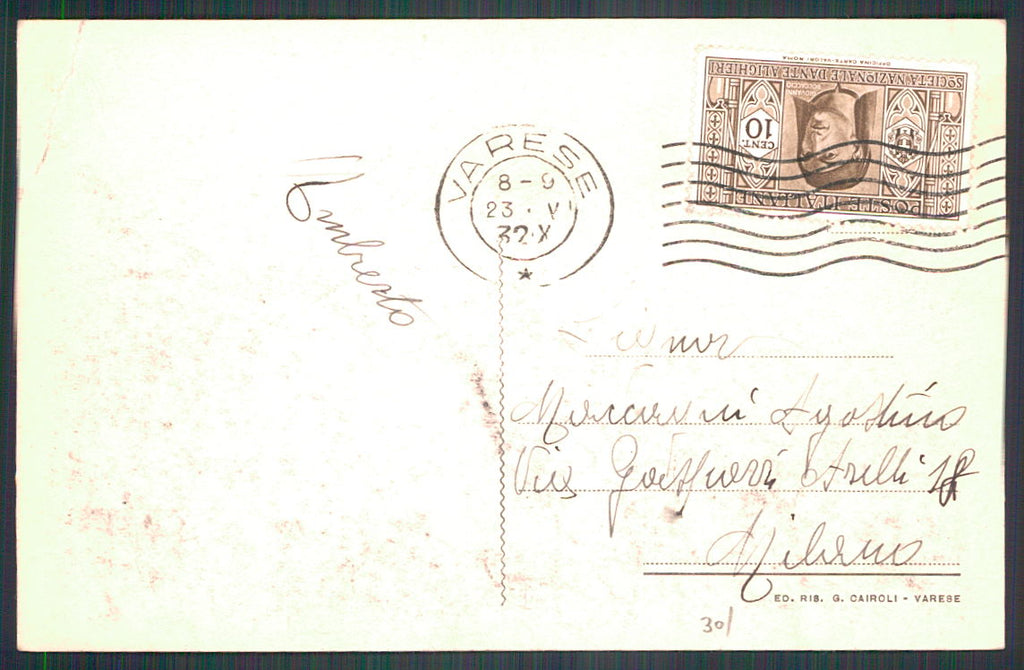 OFFICINA CARTE-VALORI ROMA
SOCIETÀ NAZIONALE DANTE ALIGHIERI
GIOVANNI
BOCCACCIO
CENT.
10
POSTE ITALIANE
VARESE
8-9
23 . V
32.X
Umberto
Signor
Agostino
Via
Milano
ED. RIS. G. CAIROLI - VARESE
30/